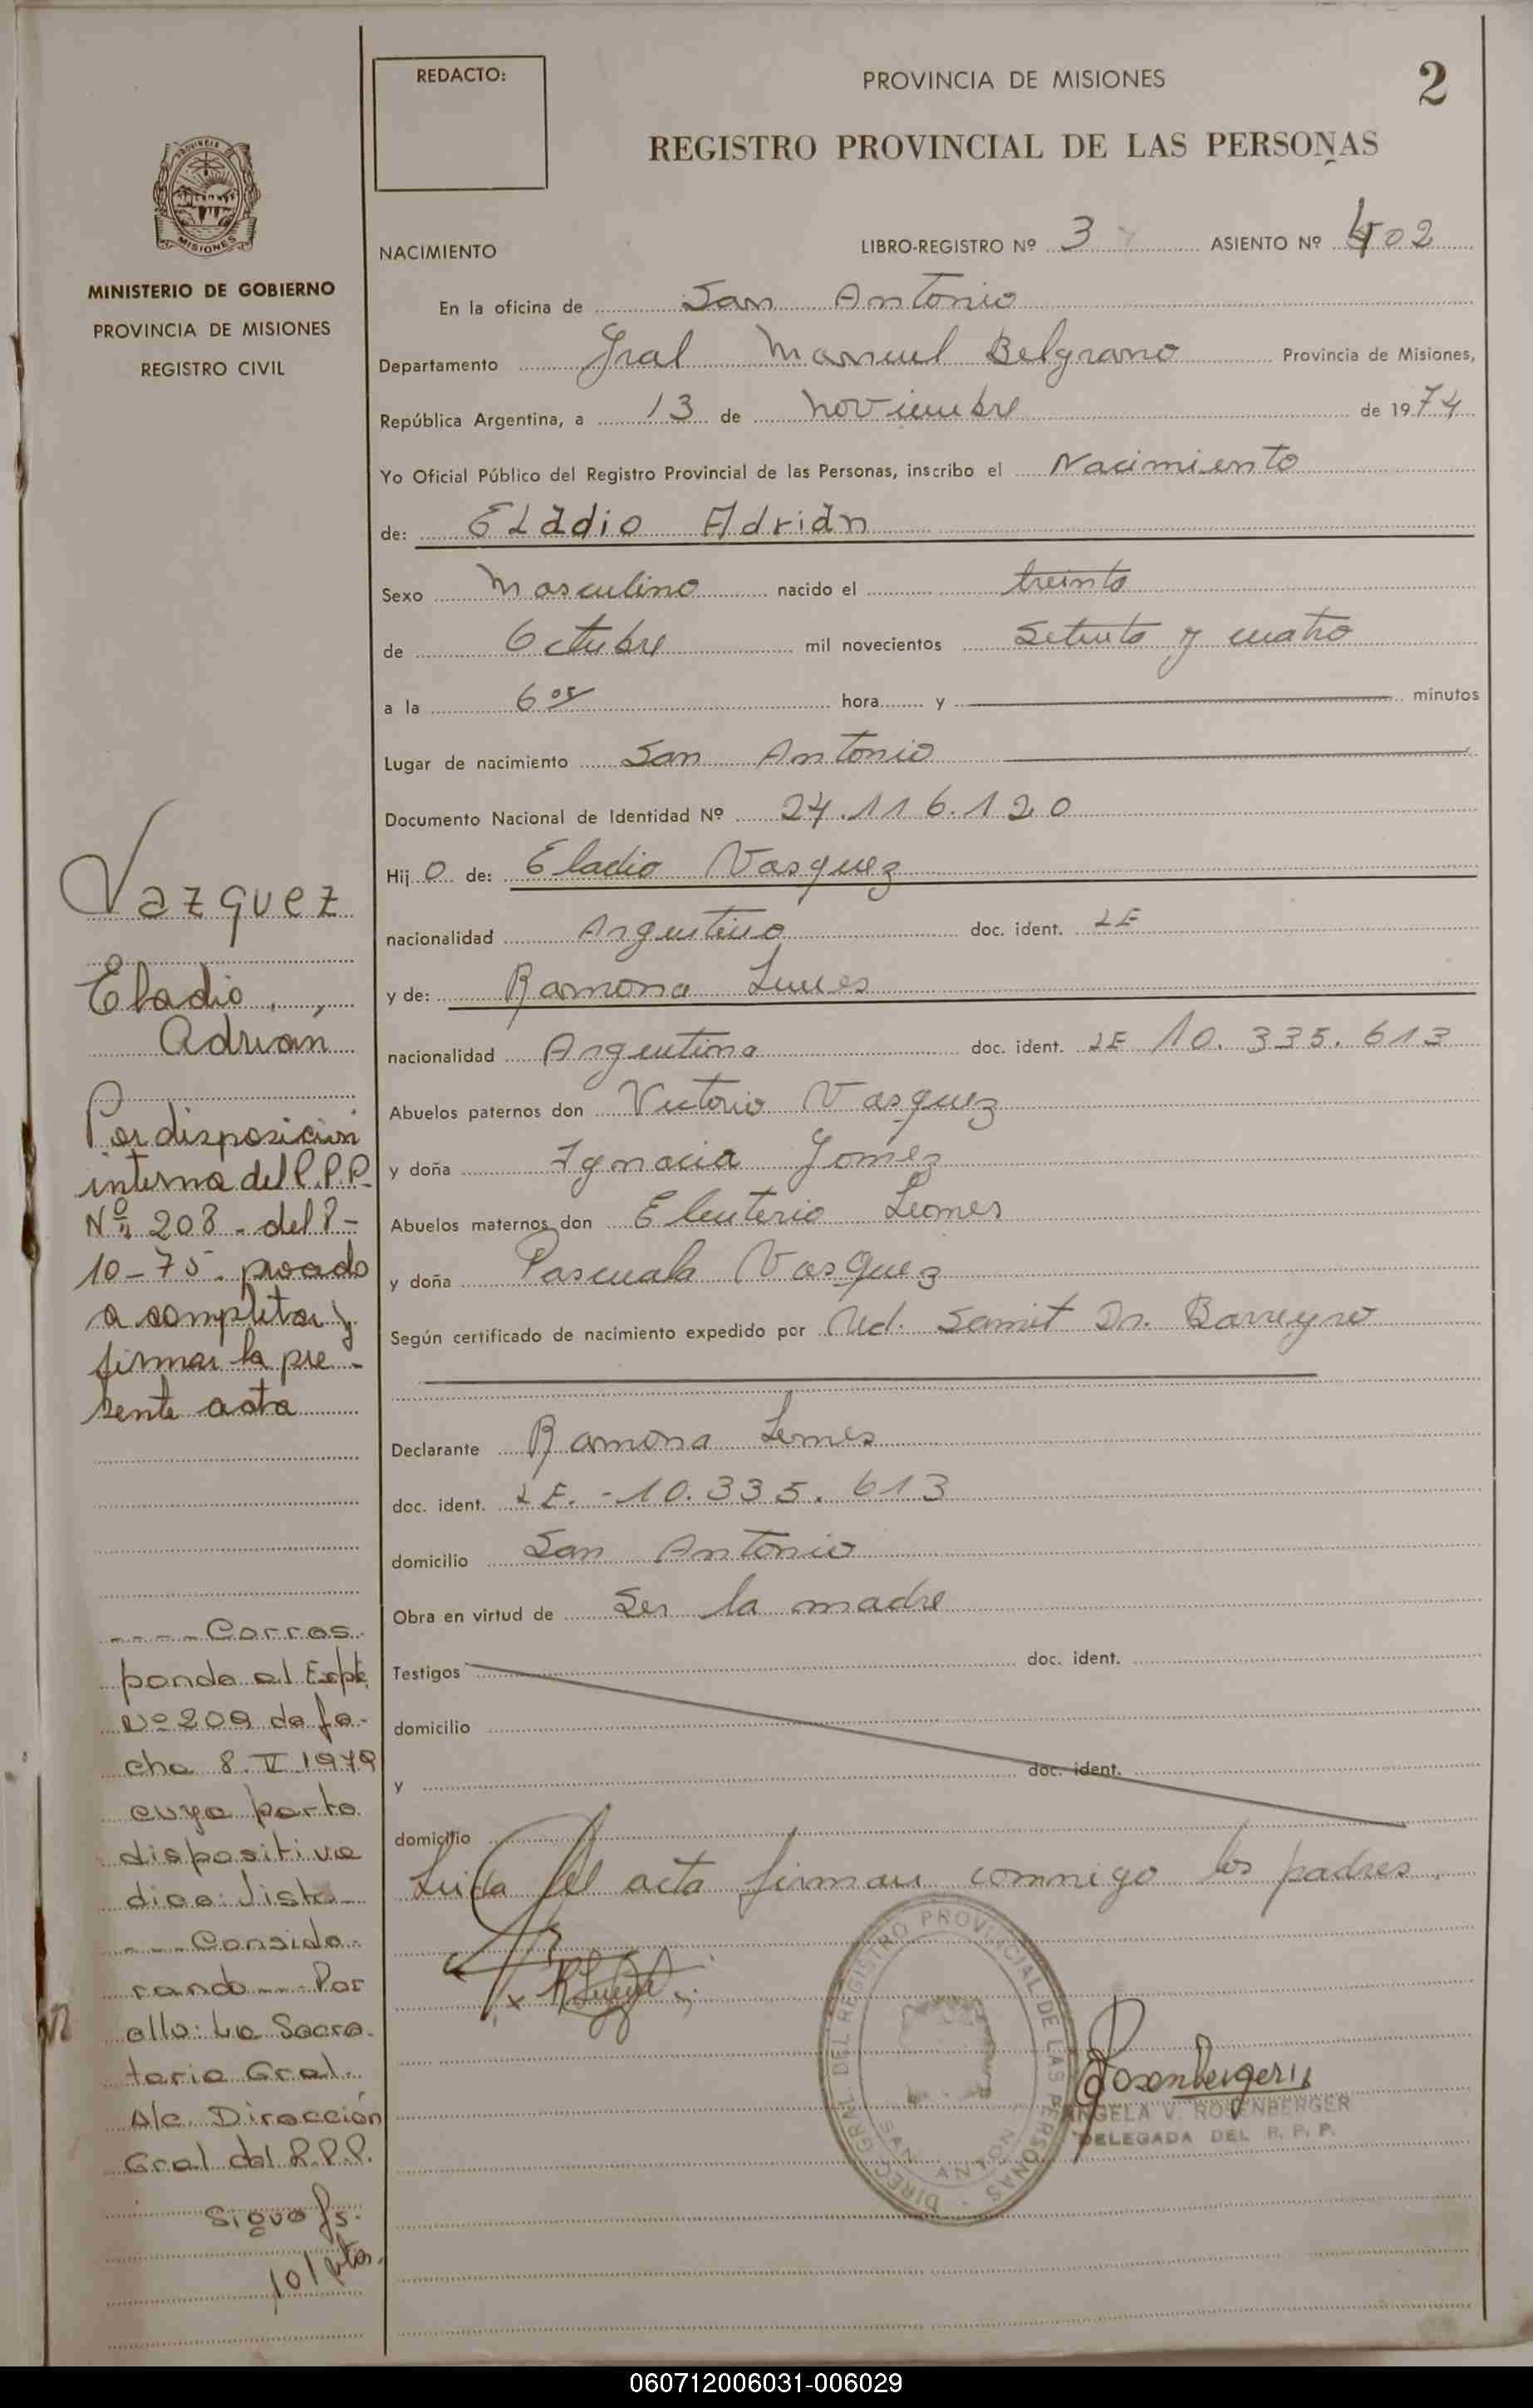 REDACTO:
PROVINCIA DE MISIONES
2
REGISTRO PROVINCIAL DE LAS PERSONAS
MISIONES
MINISTERIO DE GOBIERNO
PROVINCIA DE MISIONES
REGISTRO CIVIL
NACIMIENTO LIBRO-REGISTRO Nº 3 ASIENTO Nº 402
En la oficina de San Antonio
Departamento Gral Manuel Belgrano Provincia de Misiones,
República Argentina, a 13 de noviembre de 1974
Yo Oficial Público del Registro Provincial de las Personas, inscribo el Nacimiento
de: Eladio Adrián
Sexo Masculino nacido el treinta
de Octubre mil novecientos setenta y cuatro
a la 6 hora y minutos
Lugar de nacimiento San Antonio
Documento Nacional de Identidad Nº 24.116.120
Hij o de: Eladio Vasquez
nacionalidad Argentino doc. ident. LE
y de: Ramona Lemes
nacionalidad Argentina doc. ident. LE 10.335.613
Abuelos paternos don Victorio Vasquez
y doña Ignacia Gomez
Abuelos maternos don Eleuterio Lemes
y doña Pascuala Vasquez
Según certificado de nacimiento expedido por Ud. Sanit Dr. Barreyro
Declarante Ramona Lemes
doc. ident. LE. - 10.335.613
domicilio San Antonio
Obra en virtud de ser la madre
Testigos doc. ident.
domicilio
y doc. ident.
domicilio
Leida el acta firman conmigo los padres.
Vazquez
Eladio,
Adrian
Por disposicion
interna del R.P.P.
Nº 208 - del 8-
10-75. procedo
a completar y
firmar la pre-
sente acta
---- Corres
ponde al Expte
Nº 209 de fe-
cha 8.V.1979
cuya parte
dispositiva
dice: Visto
---- Conside-
rando ---- Por
ello: La Secre-
taria Gral.
A/c. Dirección
Gral del R.P.P.
Sigue fs.
101 vta.
DIREC. GRAL. DEL REGISTRO PROVINCIAL DE LAS PERSONAS
SAN ANTONIO
Rosenberger
ANGELA V. ROSENBERGER
DELEGADA DEL R. P. P.
060712006031-006029